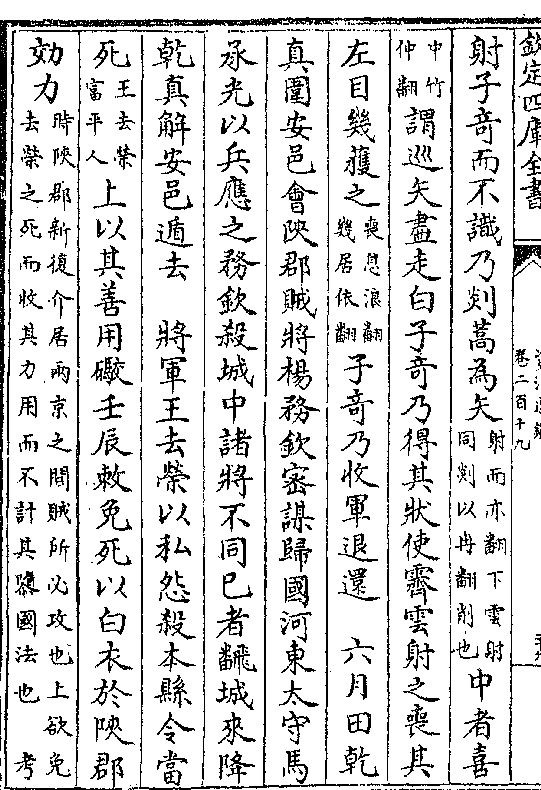 欽定四庫全書
卷二百十九
射子竒而不識乃剡蒿為矢射而亦翻下雲射同剡以冉翻削也中者喜
中竹仲翻謂巡矢盡走白子竒乃得其狀使霽雲射之喪其
左目幾獲之喪息浪翻幾居依翻子竒乃收軍退還 六月田乾
真圍安邑會陜郡賊將楊務欽密謀歸國河東太守馬
承光以兵應之務欽殺城中諸將不同已者翻城來降
乾真解安邑遁去 將軍王去榮以私怨殺本縣令當
死王去榮富平人上以其善用礮壬辰敕免死以白衣於陜郡
効力時陜郡新復介居兩京之間賊所必攻也上欲免去榮之死而收其力用而不計其隳國法也 考